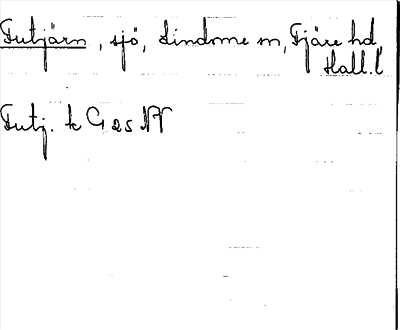 Tutjärn, sjö, Lindome sn, Fjäre hd
Hall. l
Tutj. k G 25 NV